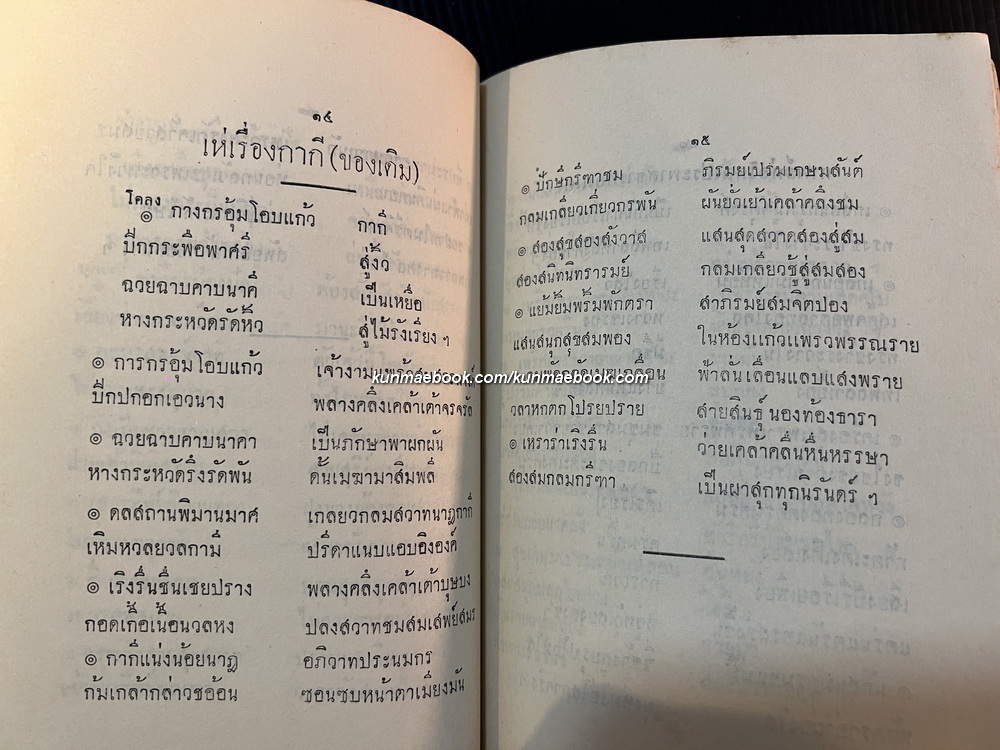 ๑๔
เห่เรื่องกากี (ของเดิม)
โคลง
๑ กางกรอุ้มโอบแก้ว กากี
ปีกกระพือพาศรี สู่งิ้ว
ฉวยฉาบคาบนาคี เป็นเหยื่อ
หางกระหวัดรัดหิ้ว สู่ไม้รังเรียง ฯ
๑ การกรอุ้มโอบแก้ว เจ้างาม
ปีกปกอกเอวนาง พลางคลึงเคล้าเต้าจรจรัล
๑ ฉวยฉาบคาบนาคา เป็นภักษาพาผกผัน
หางกระหวัดรึงรัดพัน ดั้นเมฆามาสิมพลี
๑ ดลสถานพิมานมาศ เกลยวกลมสวาทนาฏกากี
เหิมหวลยวลกามี ปรีดาแนบแอบอิงองค์
๑ เริงรื่นชื่นเชยปราง พลางคลึงเคล้าเต้าบุษบง
กอดเกื้อเนื้อนวลหง ปลงสวาทชมสมเสพย์สมร
๑ กากีแน่งน้อยนาฏ อภิวาทประนมกร
ก้มเกล้ากล่าวชอ้อน ซอนซบหน้าตาเมียงมัน
๑๕
๑ ปักษีกรีฑาชม ภิรมย์เปรมเกษมสันต์
กลมเกลียวเกี่ยวกรพัน ผันยั่วเย้าเคล้าคลึงชม
๑ สองสุขสองสังวาส แสนสุดสวาดสองสู่สม
สองสนิทนิทรารมย์ กลมเกลียวชู้สู่สมสอง
๑ แย้มยิ้มพริ้มพักตรา สาภิรมย์สมจิตปอง
แสนสนุกสุขสมพอง ในห้องแก้วแพรวพรรณราย
ฟ้าลั่นเลื่อนแลบแสงพราย
วลาหกตกโปรยปราย สายสินธุ์นองท้องธารา
๑ เหราร่าเริงรื่น ว่ายเคล้าคลื่นหื่นหรรษา
สองสมกลมกรีฑา เป็นผาสุกทุกนิรันดร์ ฯ
kunmaebook.com/kunmaebook.com